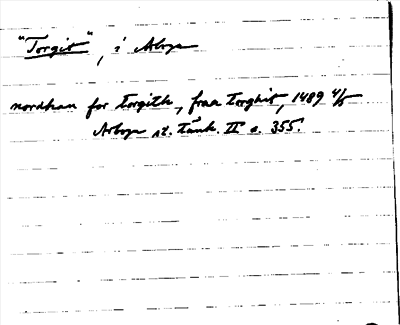 "Torgit", i Arboga
nordhan for torgith, fran torghit, 1489 4/5
Arboga st. tänk. II s. 355.